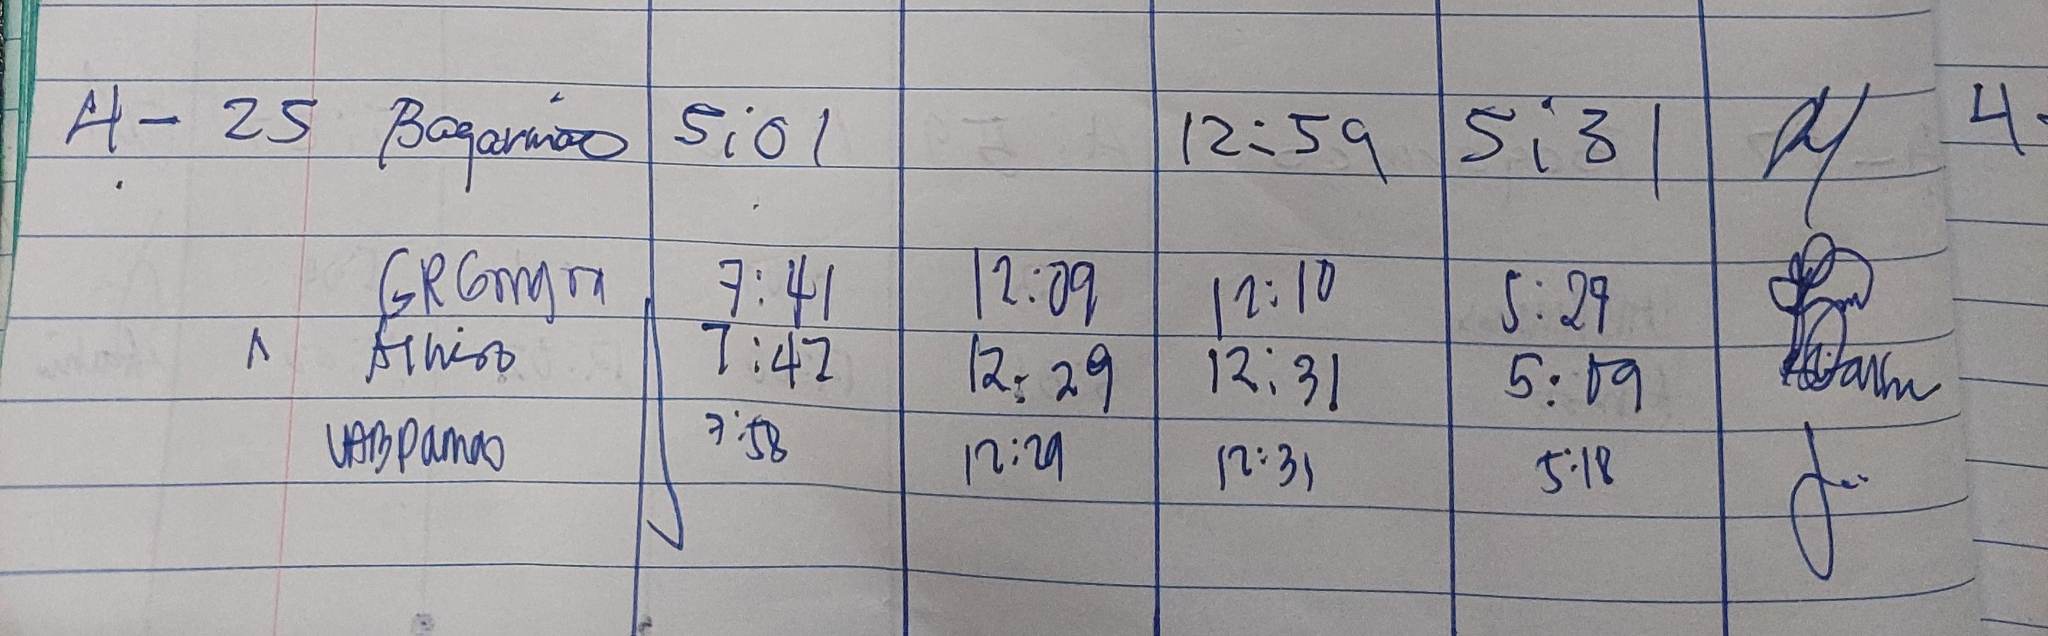 4 - 25 Bagarinao 5:01 12:59 5:31 4-
GRGongon 7:41 12:09 12:10 5:29
7:47 12:29 12:31 5:09
VABDamas 7:58 12:29 12:31 5:18